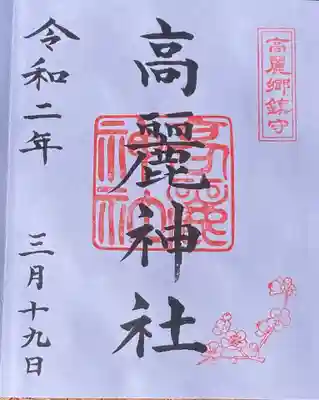 高麗郷鎮守
高麗神社
高麗神社
令和二年
三月十九日